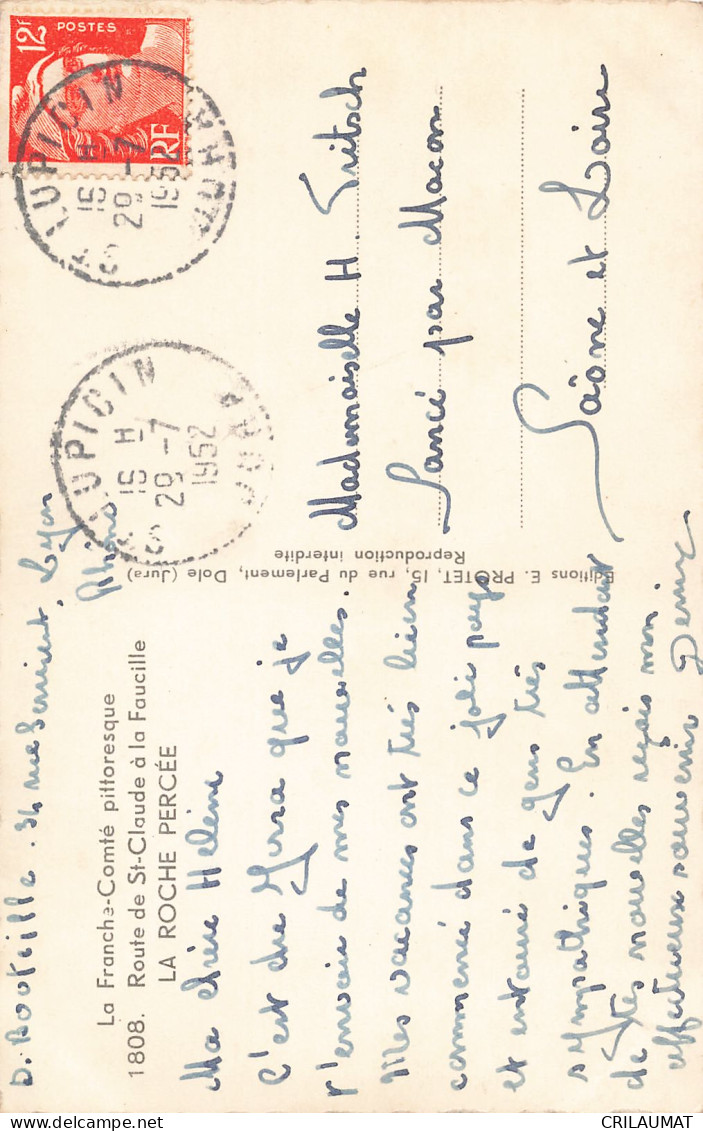 D. Bouteille . 34 rue Servient, Lyon
Rhône
La Franche-Comté pittoresque
1808. Route de St-Claude à la Faucille
LA ROCHE PERCÉE
Ma chère Hélène
C'est du Jura que je
t'envoie de mes nouvelles.
Mes vacances ont très bien
commencé dans ce joli pays
et entouré de gens très
sympathiques. En attendant
de tes nouvelles reçois mon
affectueux souvenir Denise
Editions E. PROTET, 15, rue du Parlement, Dole (Jura)
Reproduction interdite
12F
POSTES
RF
ST LUPICIN
16 H
29 -7
1952
JURA
ST LUPICIN
16 H
29 -7
1952
JURA
Mademoiselle H. Fritsch
Sancé par Macon
Saône et Loire
CRILAUMAT